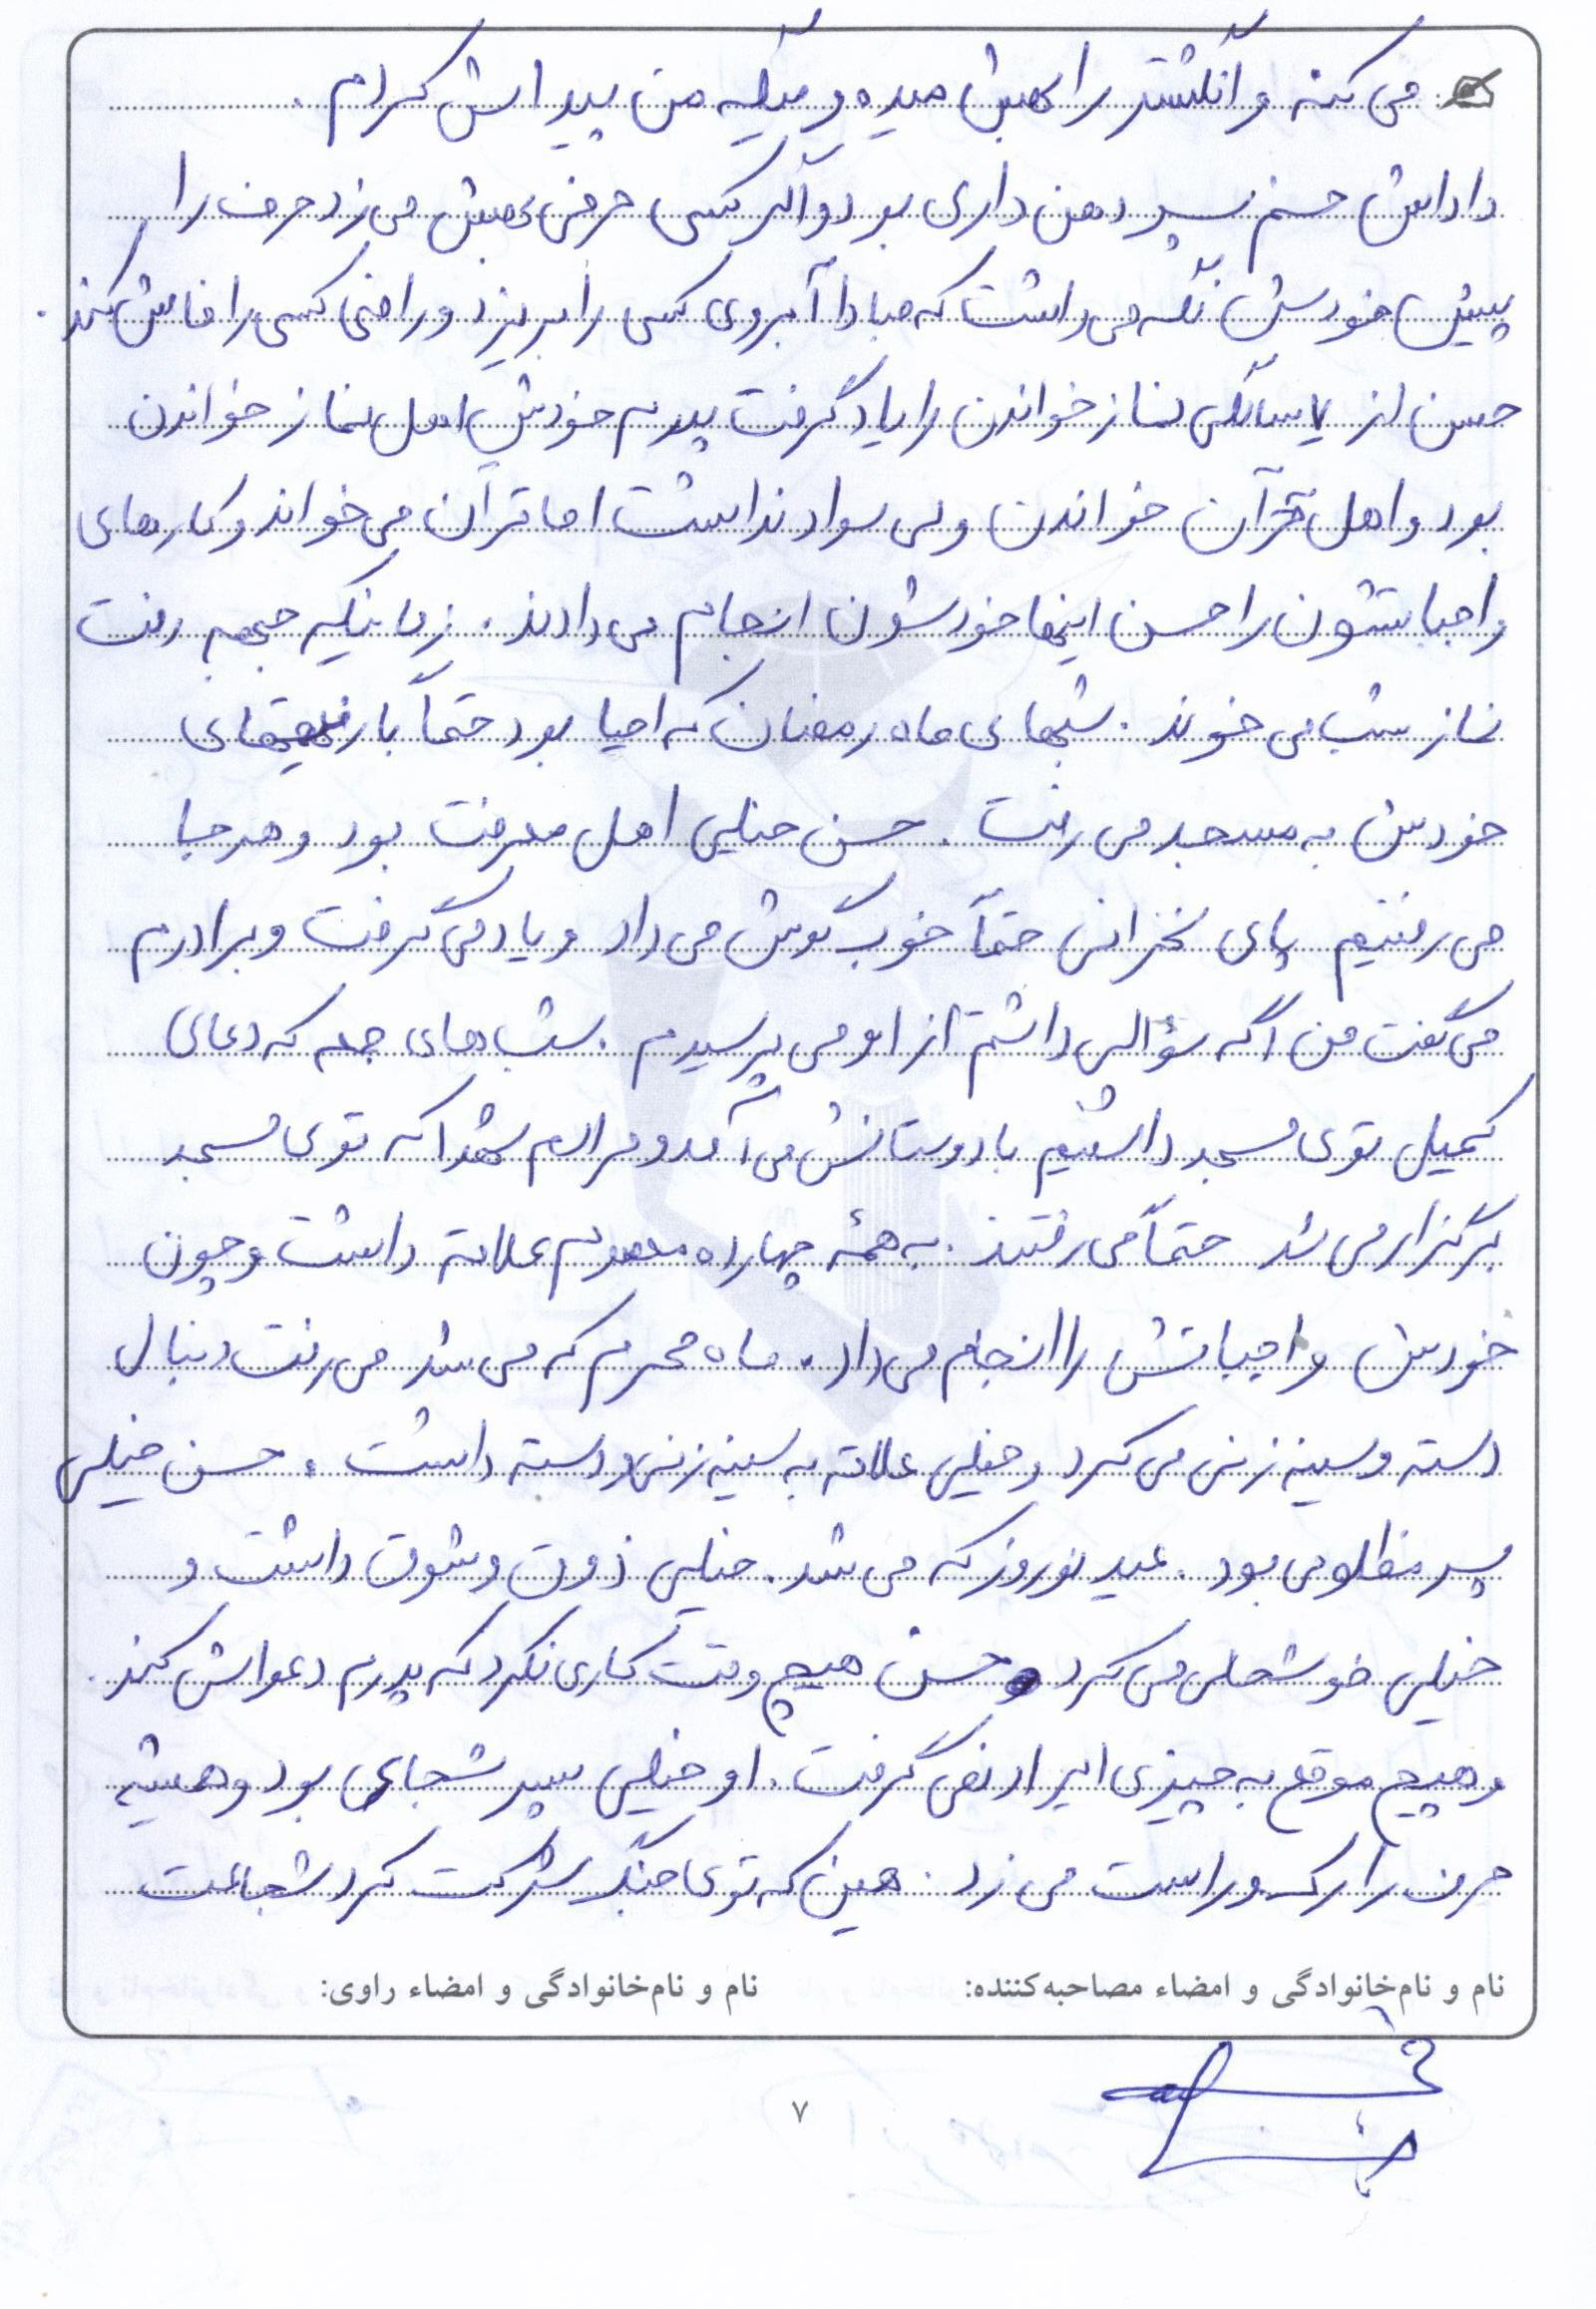 می کنه و انگشتر را بهش میده و میگه من پیداش کردم .
داداش حسنم پسر دهن داری بود و اگر کسی حرفی بهش می زد حرف را
پیش خودش نگه می داشت که مبادا آبروی کسی را بریزد و راضی کسی را فاش کند .
حسن از ۷ سالگی نماز خواندن را یاد گرفت پدرم خودش اهل نماز خواندن
بود و اهل قرآن خواندن ولی سواد نداشت اما قرآن می خواند و کارهای
واجباتشون را حسن اینها خودشون انجام می دادند . زمانیکه جبهه رفت
نماز شب می خوند . شبهای ماه رمضان که احیا بود حتماً با رفیقهای
خودش به مسجد می رفت . حسن خیلی اهل معرفت بود و هر جا
می رفتیم پای سخنرانی حتماً خوب گوش می داد و یاد می گرفت و برادرم
می گفت من اگه سؤالی داشتم از او می پرسیدم . شب های جمعه که دعای
کمیل توی مسجد داشتیم با دوستانش می آمد و مراسم شهدا که توی مسجد
برگزار می شد حتماً می رفتند . به همهٔ چهارده معصوم علاقه داشت و چون
خودش واجباتش را انجام می داد . ماه محرم که می شد می رفت دنبال
دسته و سینه زنی می کرد و خیلی علاقه به سینه زنی و دسته داشت . حسن خیلی
پسر مظلومی بود . عید نوروز که می شد . خیلی ذوق و شوق داشت و
خیلی خوشحالی می کرد و حسن هیچ وقت کاری نکرد که پدرم دعواش کند .
و هیچ موقع به چیزی ایراد نمی گرفت . او خیلی پسر شجاعی بود و همیشه
حرف را رک و راست می زد . همین که توی جنگ شرکت کرد شجاعت
نام و نام‌خانوادگی و امضاء مصاحبه‌کننده: نام و نام‌خانوادگی و امضاء راوی:
۷